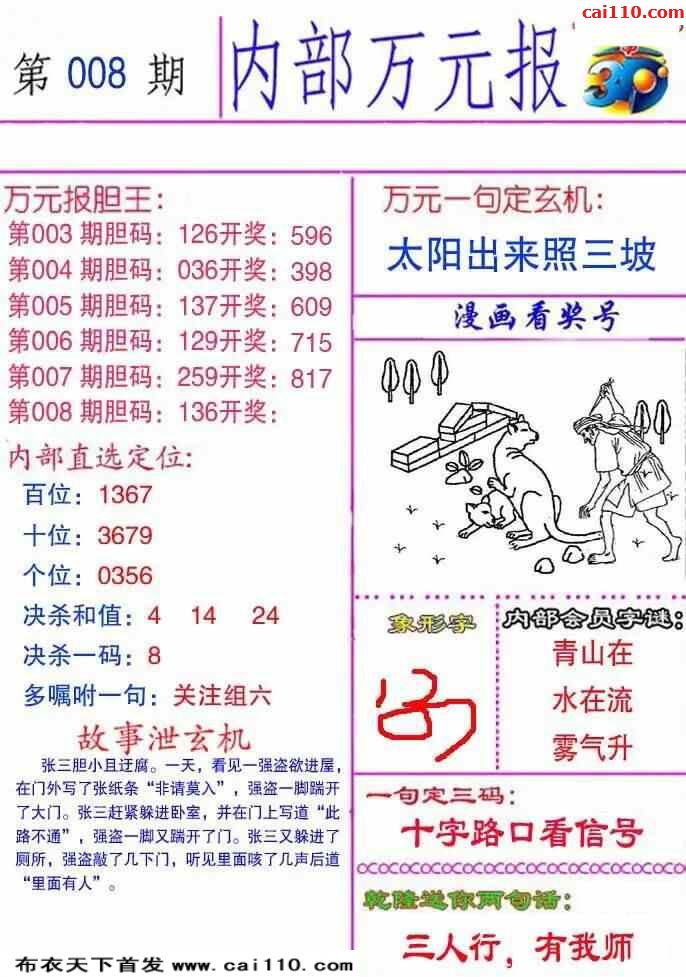 cai110.com
第 008 期
内部万元报
3D
万元报胆王：
第003 期胆码：126开奖：596
第004 期胆码：036开奖：398
第005 期胆码：137开奖：609
第006 期胆码：129开奖：715
第007 期胆码：259开奖：817
第008 期胆码：136开奖：
内部直选定位：
百位：1367
十位：3679
个位：0356
决杀和值：4 14 24
决杀一码：8
多嘱咐一句：关注组六
故事泄玄机
张三胆小且迂腐。一天，看见一强盗欲进屋，
在门外写了张纸条“非请莫入”，强盗一脚踹开
了大门。张三赶紧躲进卧室，并在门上写道“此
路不通”，强盗一脚又踹开了门。张三又躲进了
厕所，强盗敲了几下门，听见里面咳了几声后道
“里面有人”。
万元一句定玄机：
太阳出来照三坡
漫画看奖号
象形字
内部会员字谜：
青山在
水在流
雾气升
一句定三码：
十字路口看信号
乾隆送你两句话：
三人行，有我师
布衣天下首发 www.cai110.com